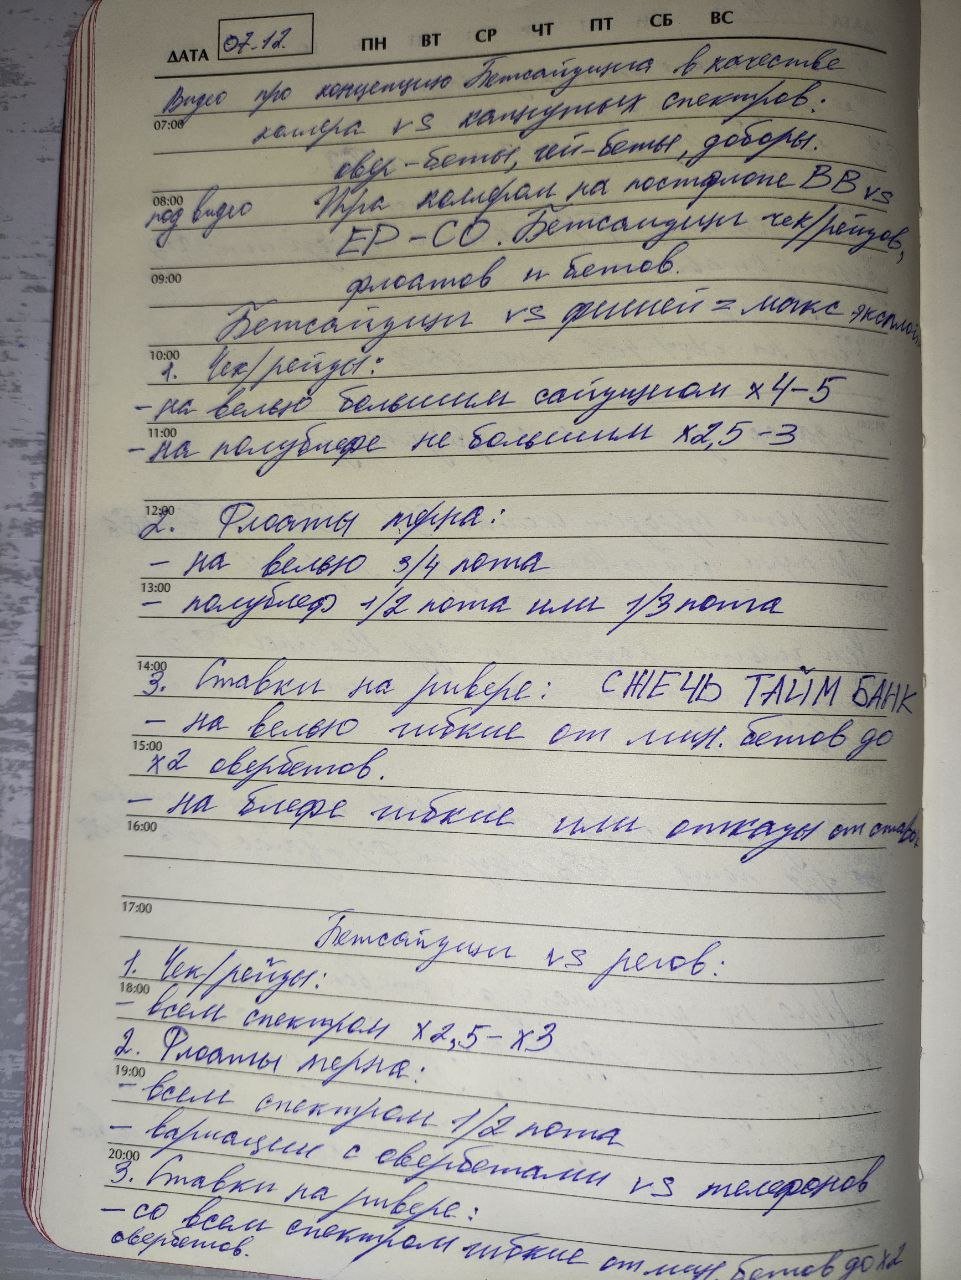 ДАТА 07.12. ПН ВТ СР ЧТ ПТ СБ ВС
Видео про концепцию Бетсайдинга в качестве
07:00
коллера vs капнутых спектров:
овер-беты, чей-беты, доборы.
08:00
под видео Игра коллером на постфлопе BB vs
EP-CO. Бетсайдинги чек/рейзов,
09:00
флоатов и бетов.
Бетсайдинги vs фишей = макс эксплойт
10:00
1. Чек/рейзы:
- на велью большим сайзингом x4-5
11:00
- на полублефе не большим x2,5-3
12:00
2. Флоаты тёрна:
- на велью 3/4 пота
13:00
- полублеф 1/2 пота или 1/3 пота
14:00
3. Ставки на ривере: СЖЕЧЬ ТАЙМ БАНК
- на велью гибкие от мин. бетов до
15:00
x2 овербетов.
- на блефе гибкие или отказы от ставок
16:00
17:00
Бетсайдинги vs регов:
1. Чек/рейзы:
18:00
- всем спектром x2,5-x3
2. Флоаты терна:
19:00
- всем спектром 1/2 пота
- вариации с овербетами vs телефонов
20:00
3. Ставки на ривере:
- со всем спектром гибкие от мин. бетов до x2
овербетов.